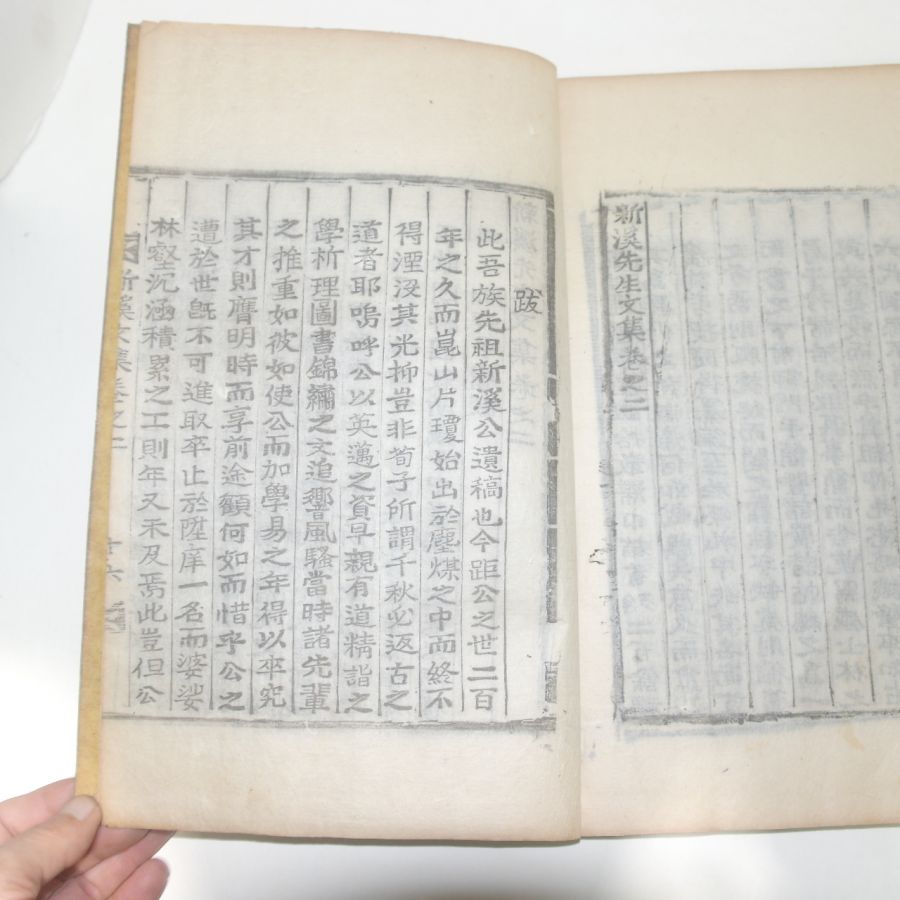 新溪先生文集卷之二
跋
此吾族先祖新溪公遺稿也今距公之世二百
年之久而崑山片瓊始出於塵煤之中而終不
得湮沒其光抑豈非荀子所謂千秋必返古之
道者耶嗚呼公以英邁之資早親有道精詣之
學析理圖書錦繡之文追響風騷當時諸先輩
之推重如彼如使公而加學易之年得以卒究
其才則膺明時而享前途顧何如而惜乎公之
遭於世旣不可進取卒止於陞庠一名而婆娑
林壑沉涵積累之工則年又不及焉此豈但公
新溪文集卷之二 十六